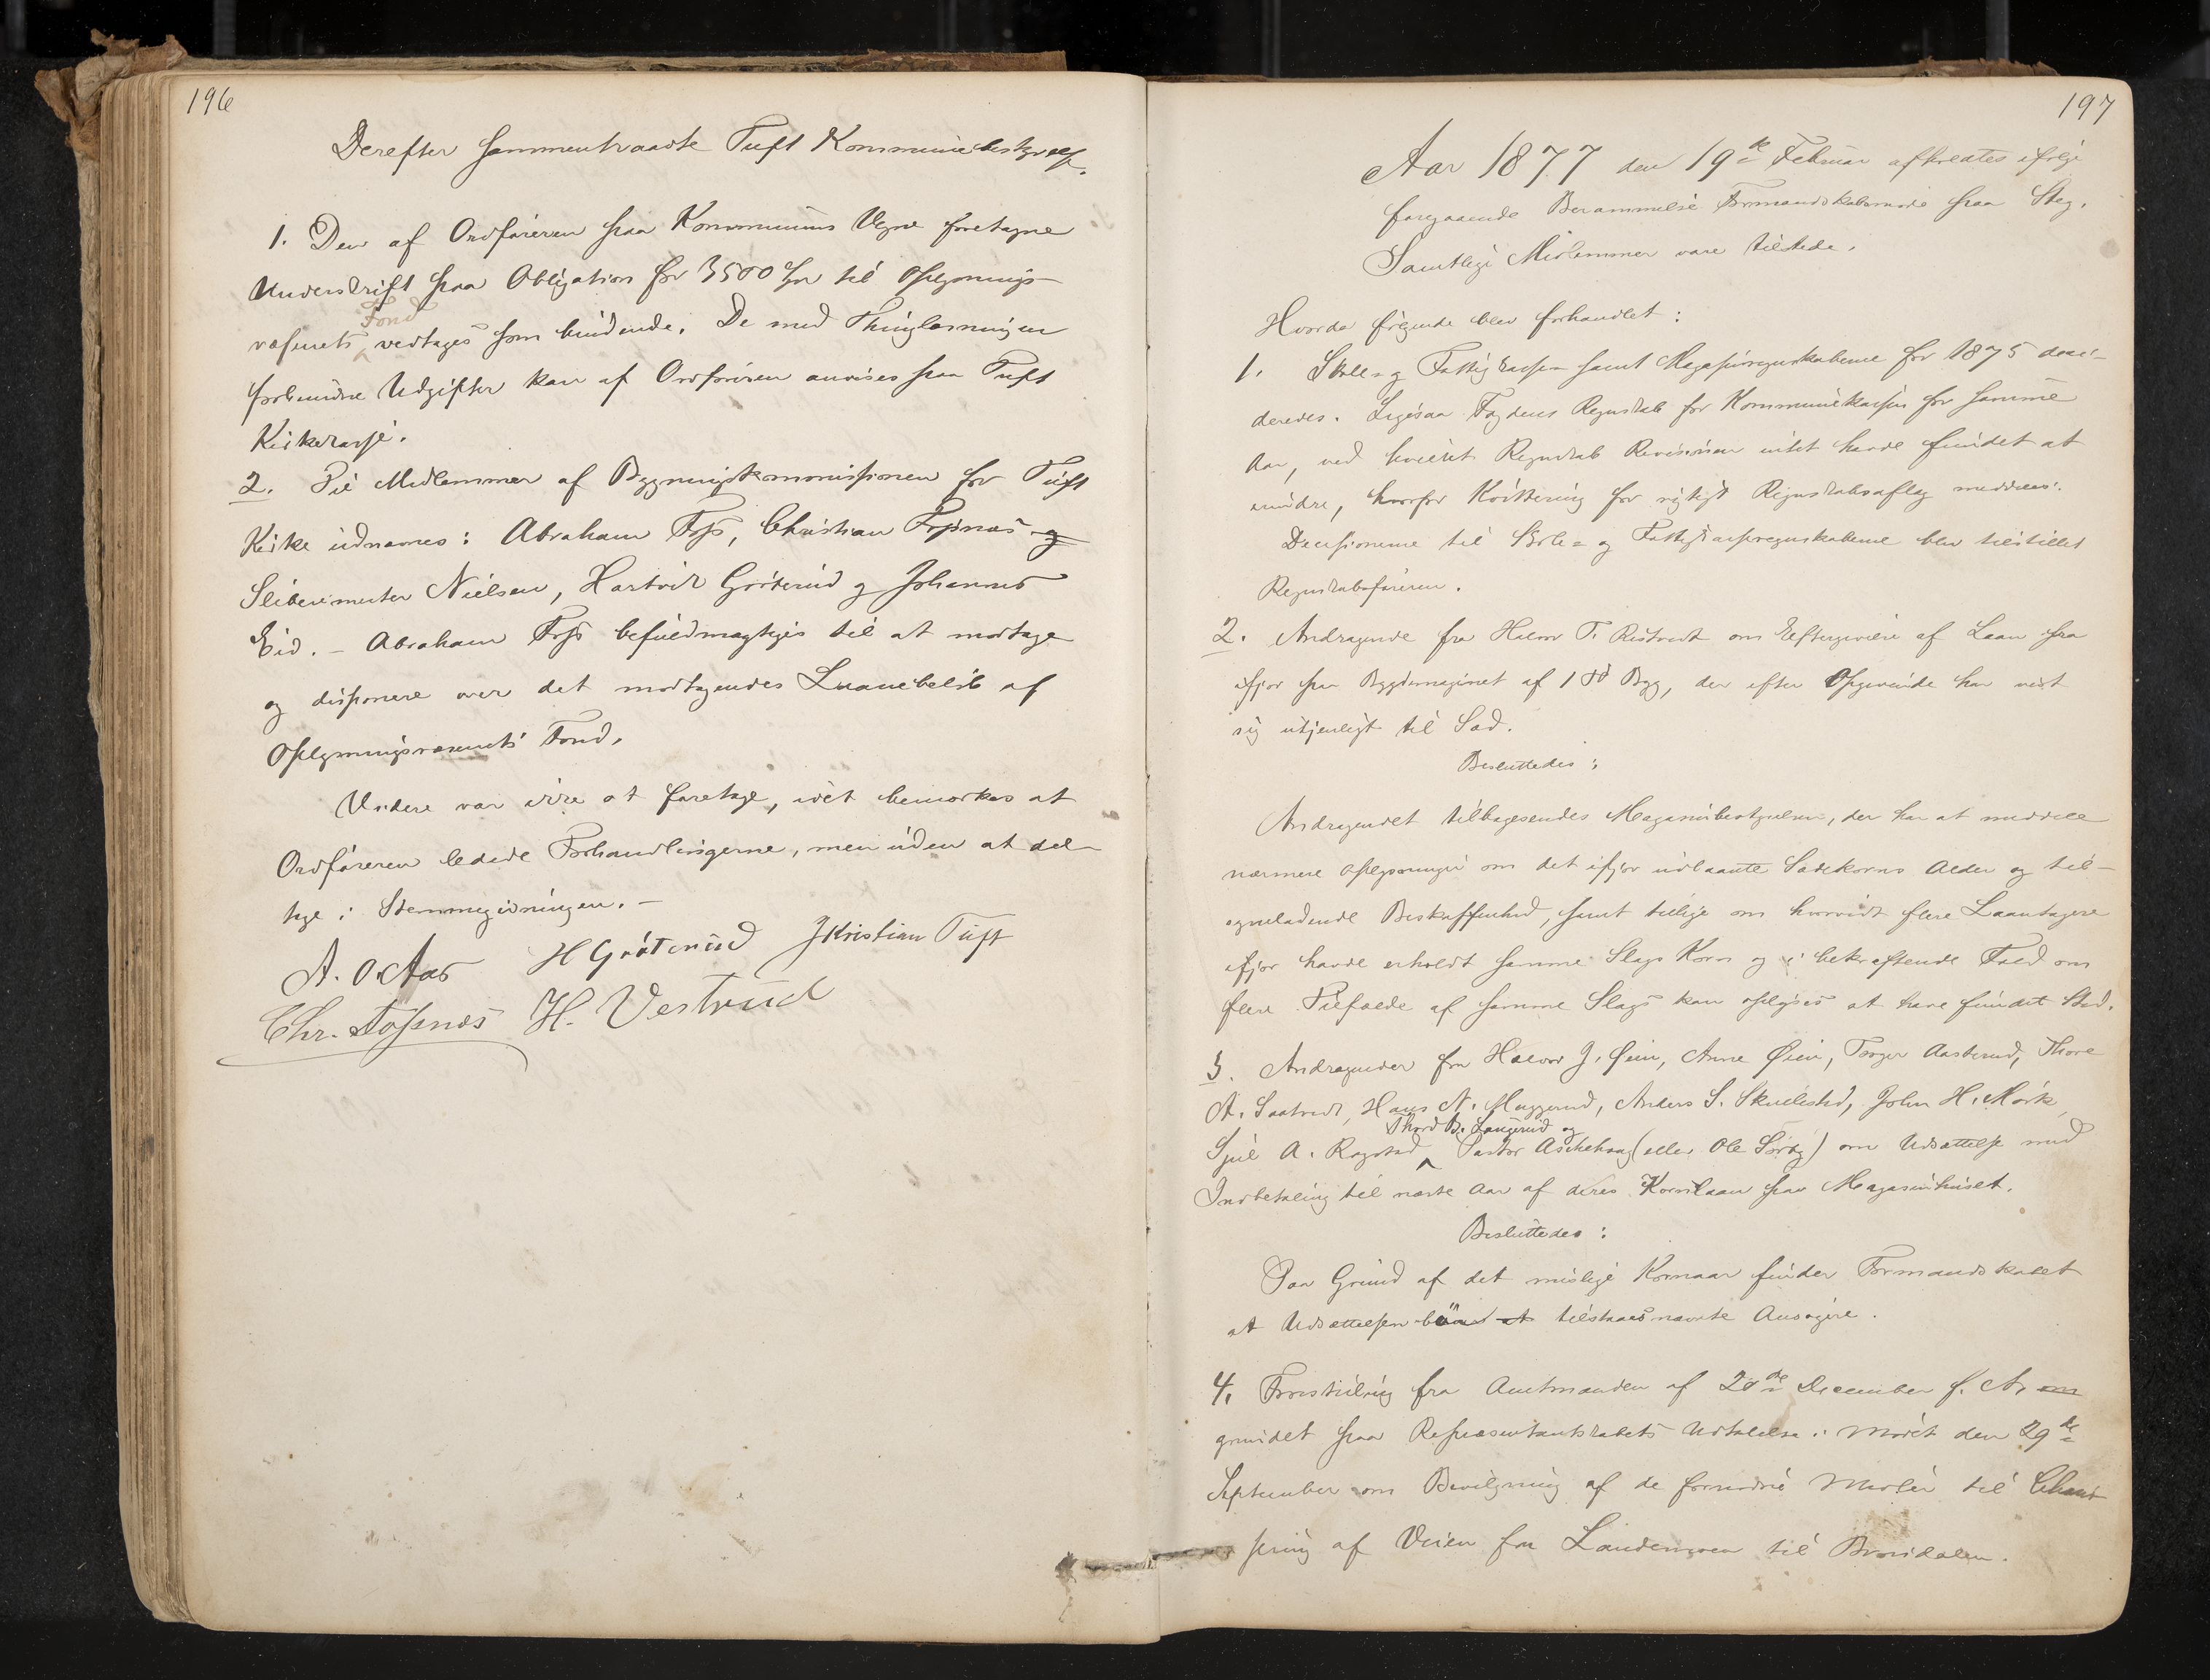 196
Derefter sammentraadte Tuft Kommunebestyrelse.
1. Den af Ordføreren paa Kommunens Vegne foretagne
Underskrift paa Obligation for 3500 Kr til Oplysnings-
Fond
væsenets vedtages som bindende. De med Thinglæsningen
forbundne Udgifter kan af Ordføreren anvises paa Tuft
Kirkekasse.
2. Til Medlemmer af Bygningskommissionen for Tuft
Kirke udnævnes: Abraham Foss, Christian Fossnæs og
Sliberimester Nielsen, Hartvik Gröterud og Johannes
Eid. - Abraham Foss befuldmægtiges til at modtage
og disponere over det modtagendes Laanebeløb af
Oplysningsvæsenets Fond.
Videre var ikke at foretage, idet bemærkes at
Ordføreren ledede Forhandlingerne, men uden at del-
tage i Stemmegivningen. -
A. O. Aas H Gröterud J Kristian Tuft
Chr. Fosnæs H. Vestrud
197
Aar 1877 den 19de Februar afholdtes ifølge
foregaaende Berammelse Formandskabsmøde paa Steg.
Samtlige Medlemmer vare tilstede.
Hvorda følgende blev forhandlet:
1. Skole- og Fattigkasse- samt Magasinregnskaberne for 1875 deci-
deredes. Ligesaa Fogdens Regnskab for Kommunekassen for samme
Aar, ved hvilket Regnskab Revisionen intet havde fundet at
erindre, hvorfor Kvittering for rigtigt Regnskabsaflæg meddeles.
Decisionerne til Skole- og Fattigkasseregnskaberne blev tilstillet
Regnskabsføreren.
2. Andragende fra Halvor T. Ristvedt om Eftergivelse af Laan fra
ifjor fra Bygdemaginet af 1 Td Byg, der efter Opgivende har vist
sig utjenligt til Sæd.
Besluttedes:
Andragendet tilbagesendes Magasinbestyrelsen, der har at meddele
nærmere Oplysninger om det ifjor udlaante Sædekorns Alder og til-
syneladende Beskaffenhed, samt tillige om hvorvidt flere Laantagere
ifjor havde erholdt samme Slags Korn og i bekræftende Fald om
flere Tilfælde af samme Slags kan oplyses at have fundet Sted.
3. Andragender fra Halvor J. Øien, Anne Øien, Torger Aasterud, Thore
A. Saatvedt, Hans N. Muggerud, Anders S. Skuelstad, John H. Mörk,
Thord B. Langerud og
Sjul A. Rogstad Pastor Aschehoug (eller Ole Sørby) om Udsættelse med
Indbetaling til næste Aar af deres Kornlaan fra Magasinhuset.
Besluttedes:
Paa Grund af det mislige Kornaar finder Formandskabet
at Udsættelsen bör at tilstaaes nævnte Ansøgere.
4. Forestilling fra Amtmanden af 20de December f. A. om
grundet paa Repræsentantskabets Udtalelse i Mødet den 29de
September om Bevilgning af de fornødne Midler til Chaus-
sering af Veien fra Landemoen til Brosdalen.